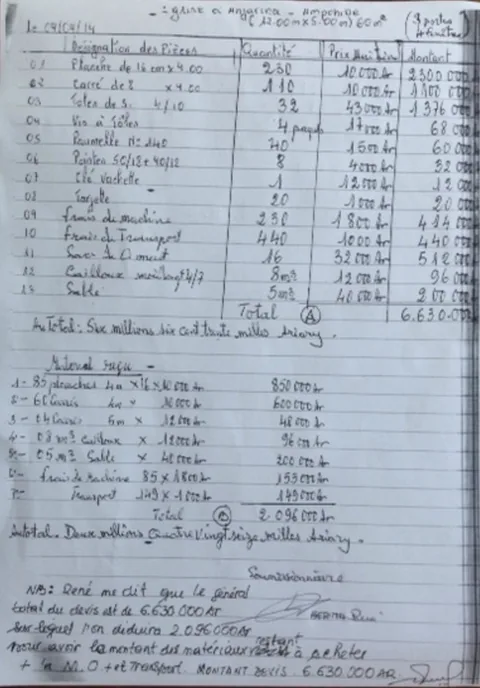 Le 09/07/14
(12.00m x 5.00m) 60 m²
(3 portes
4 fenêtres)
Désignation des Pièces Quantité Prix Unitaire Montant
01 Planche de 16 cm x 4.00 230 10 000 Ar 2 300 000
02 Carré de 8 x 4.00 110 10 000 Ar 1 100 000
03 Toles de S. 4/10 32 43 000 Ar 1 376 000
04 Vis à Tôles 4 paques 17 000 Ar 68 000
05 Paumelle N° 140 40 1500 Ar 60 000
06 Pointes 50/18 + 40/12 8 4000 Ar 32 000
07 Clé Vachette 1 12 000 Ar 12 000
08 Targette 20 1000 Ar 20 000
09 frais de machine 230 1 800 Ar 414 000
10 Frais de Transport 440 1000 Ar 440 000
11 Sacs de Ciment 16 32 000 Ar 512 000
12 Cailloux 4/7 8m³ 12 000 Ar 96 000
13 Sable 5m³ 40 000 Ar 200 000
Total A 6.630.000
Au Total: Six millions six cent trente milles Ariary.
Material reçu -
1- 85 planches 4m x 16 x 10 000 Ar 850 000 Ar
2- 60 Carrés 4m x 10 000 Ar 600 000 Ar
3- 04 Carrés 5m x 12 000 Ar 48 000 Ar
4- 08 m³ Cailloux x 12000 Ar 96 000 Ar
5- 05 m³ Sable x 40 000 Ar 200 000 Ar
6- frais de machine 85 x 1800 Ar 153 000 Ar
7- Transport 149 x 1000 Ar 149 000 Ar
Total B 2 096 000 Ar
Autotal. Deux millions Quatre Vingt seize milles Ariary.
Soumissionnaire
NB: René me dit que le général
total du devis est de 6.630 000 Ar
sur lequel l'on déduira 2.096 000 Ar
pour avoir le montant des matériaux restant à acheter
+ la M.O + et Transport. MONTANT DEVIS. 6.630 000 AR